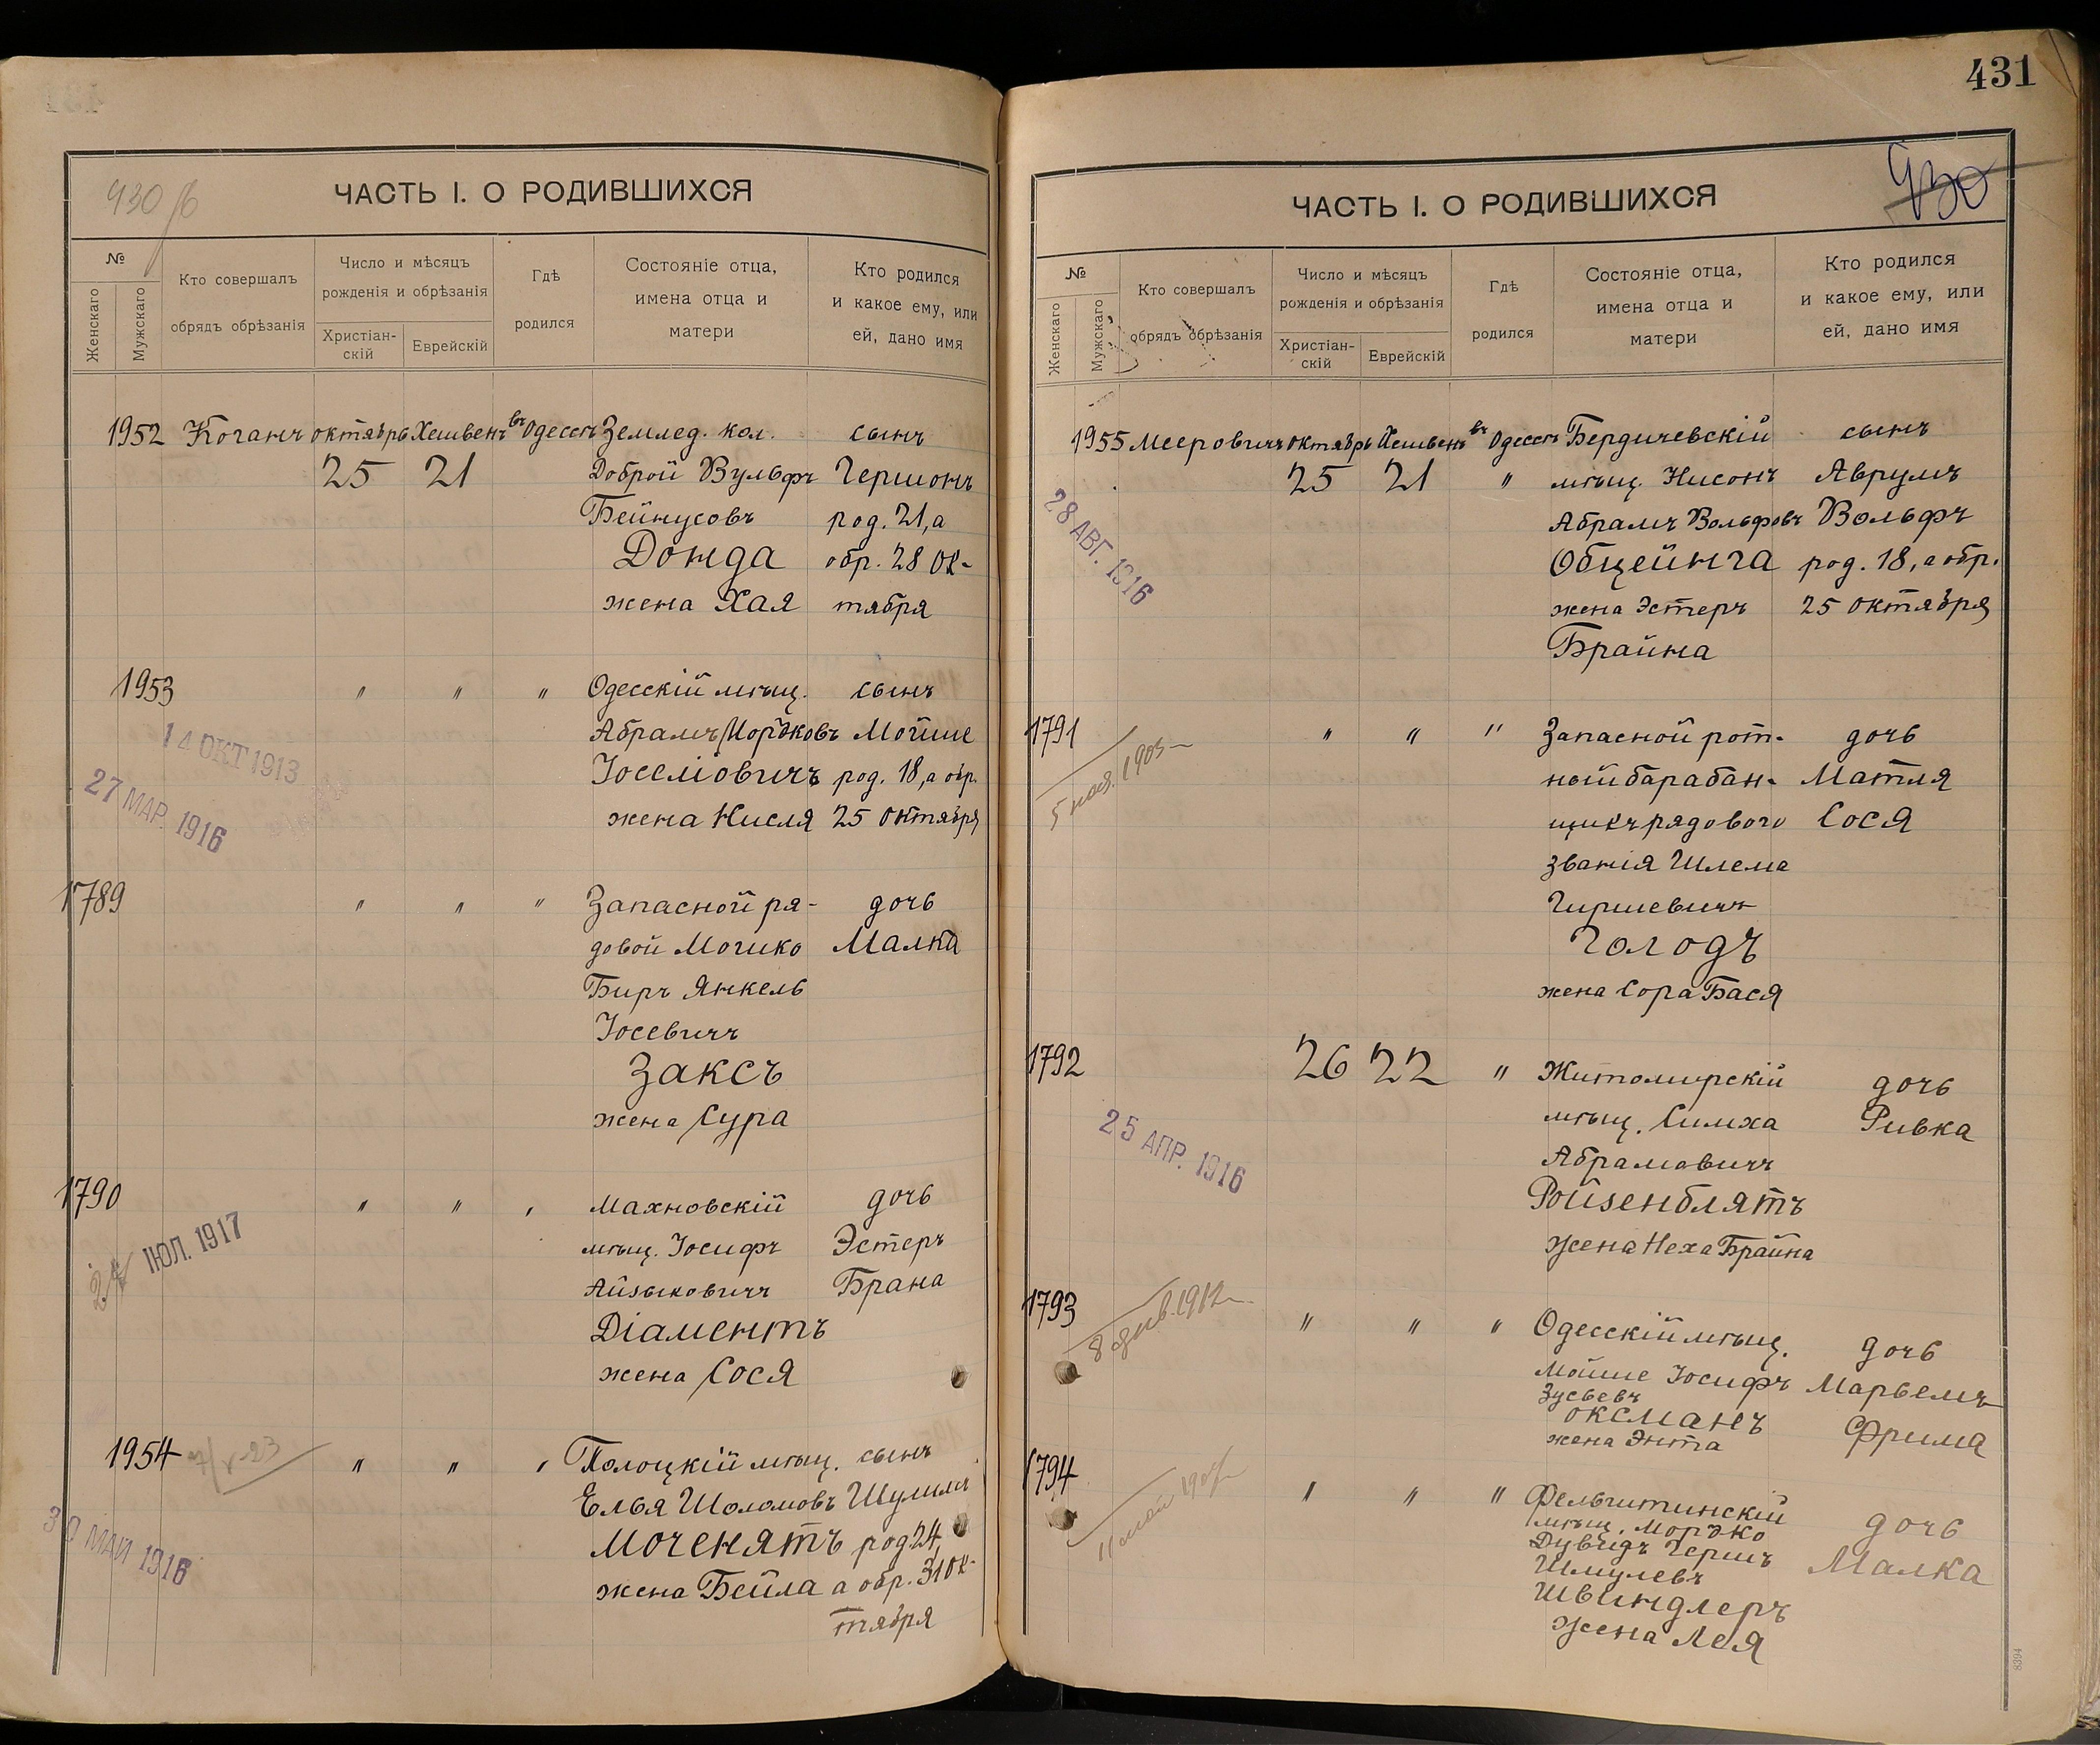 430 об
ЧАСТЬ I. О РОДИВШИХСЯ
№
Женскаго
Мужскаго
Кто совершалъ
обрядъ обрѣзанія
Число и мѣсяцъ
рожденія и обрѣзанія
Христіан-
скій
Еврейскій
Гдѣ
родился
Состояніе отца,
имена отца и
матери
Кто родился
и какое ему, или
ей, дано имя
1952 Коганъ октябрь Хешвенъ въ Одессѣ Землед. кол. сынъ
25 21 Доброй Вульфъ Гершонъ
Бейнусовъ род. 21, а
Донда обр. 28 ок-
жена Хая тября
1953 " " " Одесскій мѣщ. сынъ
Абрамъ Мордковъ Мойше
14 ОКТ 1913
Іоселіовичъ род. 18, а обр.
27 МАР. 1916
жена Нисля 25 октября
1789 " " " Запасной ря- дочь
довой Мошко Малка
Биръ Янкель
Іосевичъ
Заксъ
жена Сура
1790 " " " Махновскій дочь
мѣщ. Іосифъ Эстеръ
24 ІЮЛ. 1917
Айзыковичъ Брана
Діаментъ
жена Сося
1954 " " " Полоцкій мѣщ. сынъ
Елья Шоломовъ Шулимъ
30 МАЙ 1916
Моченятъ род. 24,
жена Бейла а обр. 31 ок-
тября
431
430
ЧАСТЬ I. О РОДИВШИХСЯ
№
Женскаго
Мужскаго
Кто совершалъ
обрядъ обрѣзанія
Число и мѣсяцъ
рожденія и обрѣзанія
Христіан-
скій
Еврейскій
Гдѣ
родился
Состояніе отца,
имена отца и
матери
Кто родился
и какое ему, или
ей, дано имя
1955 Мееровичъ октябрь Хешвенъ въ Одессѣ Бердичевскій сынъ
25 21 " мѣщ. Нисонъ Аврумъ
28 АВГ. 1916
Абрамъ Вольфовъ Вольфъ
Обцейнга род. 18, а обр.
жена Эстеръ 25 октября
Брайна
1791 " " " Запасной рот- дочь
5 ноя. 1905
ный барабан- Матля
щикъ рядового Сося
званія Шлема
Гиршевичъ
Голодъ
жена Сора Бася
1792 26 22 " Житомирскій дочь
25 АПР. 1916
мѣщ. Симха Ривка
Абрамовичъ
Ройзенблятъ
жена Неха Брайна
1793 " " " Одесскій мѣщ. дочь
1912
Мойше Іосифъ Марьемъ
Зусьевъ
Оксманъ Фрима
жена Энта
1794 " " " Фельштинскій дочь
мѣщ. Мордко Малка
Дувидъ Гершъ
Шмулевъ
Швиндлеръ
жена Лея
8394